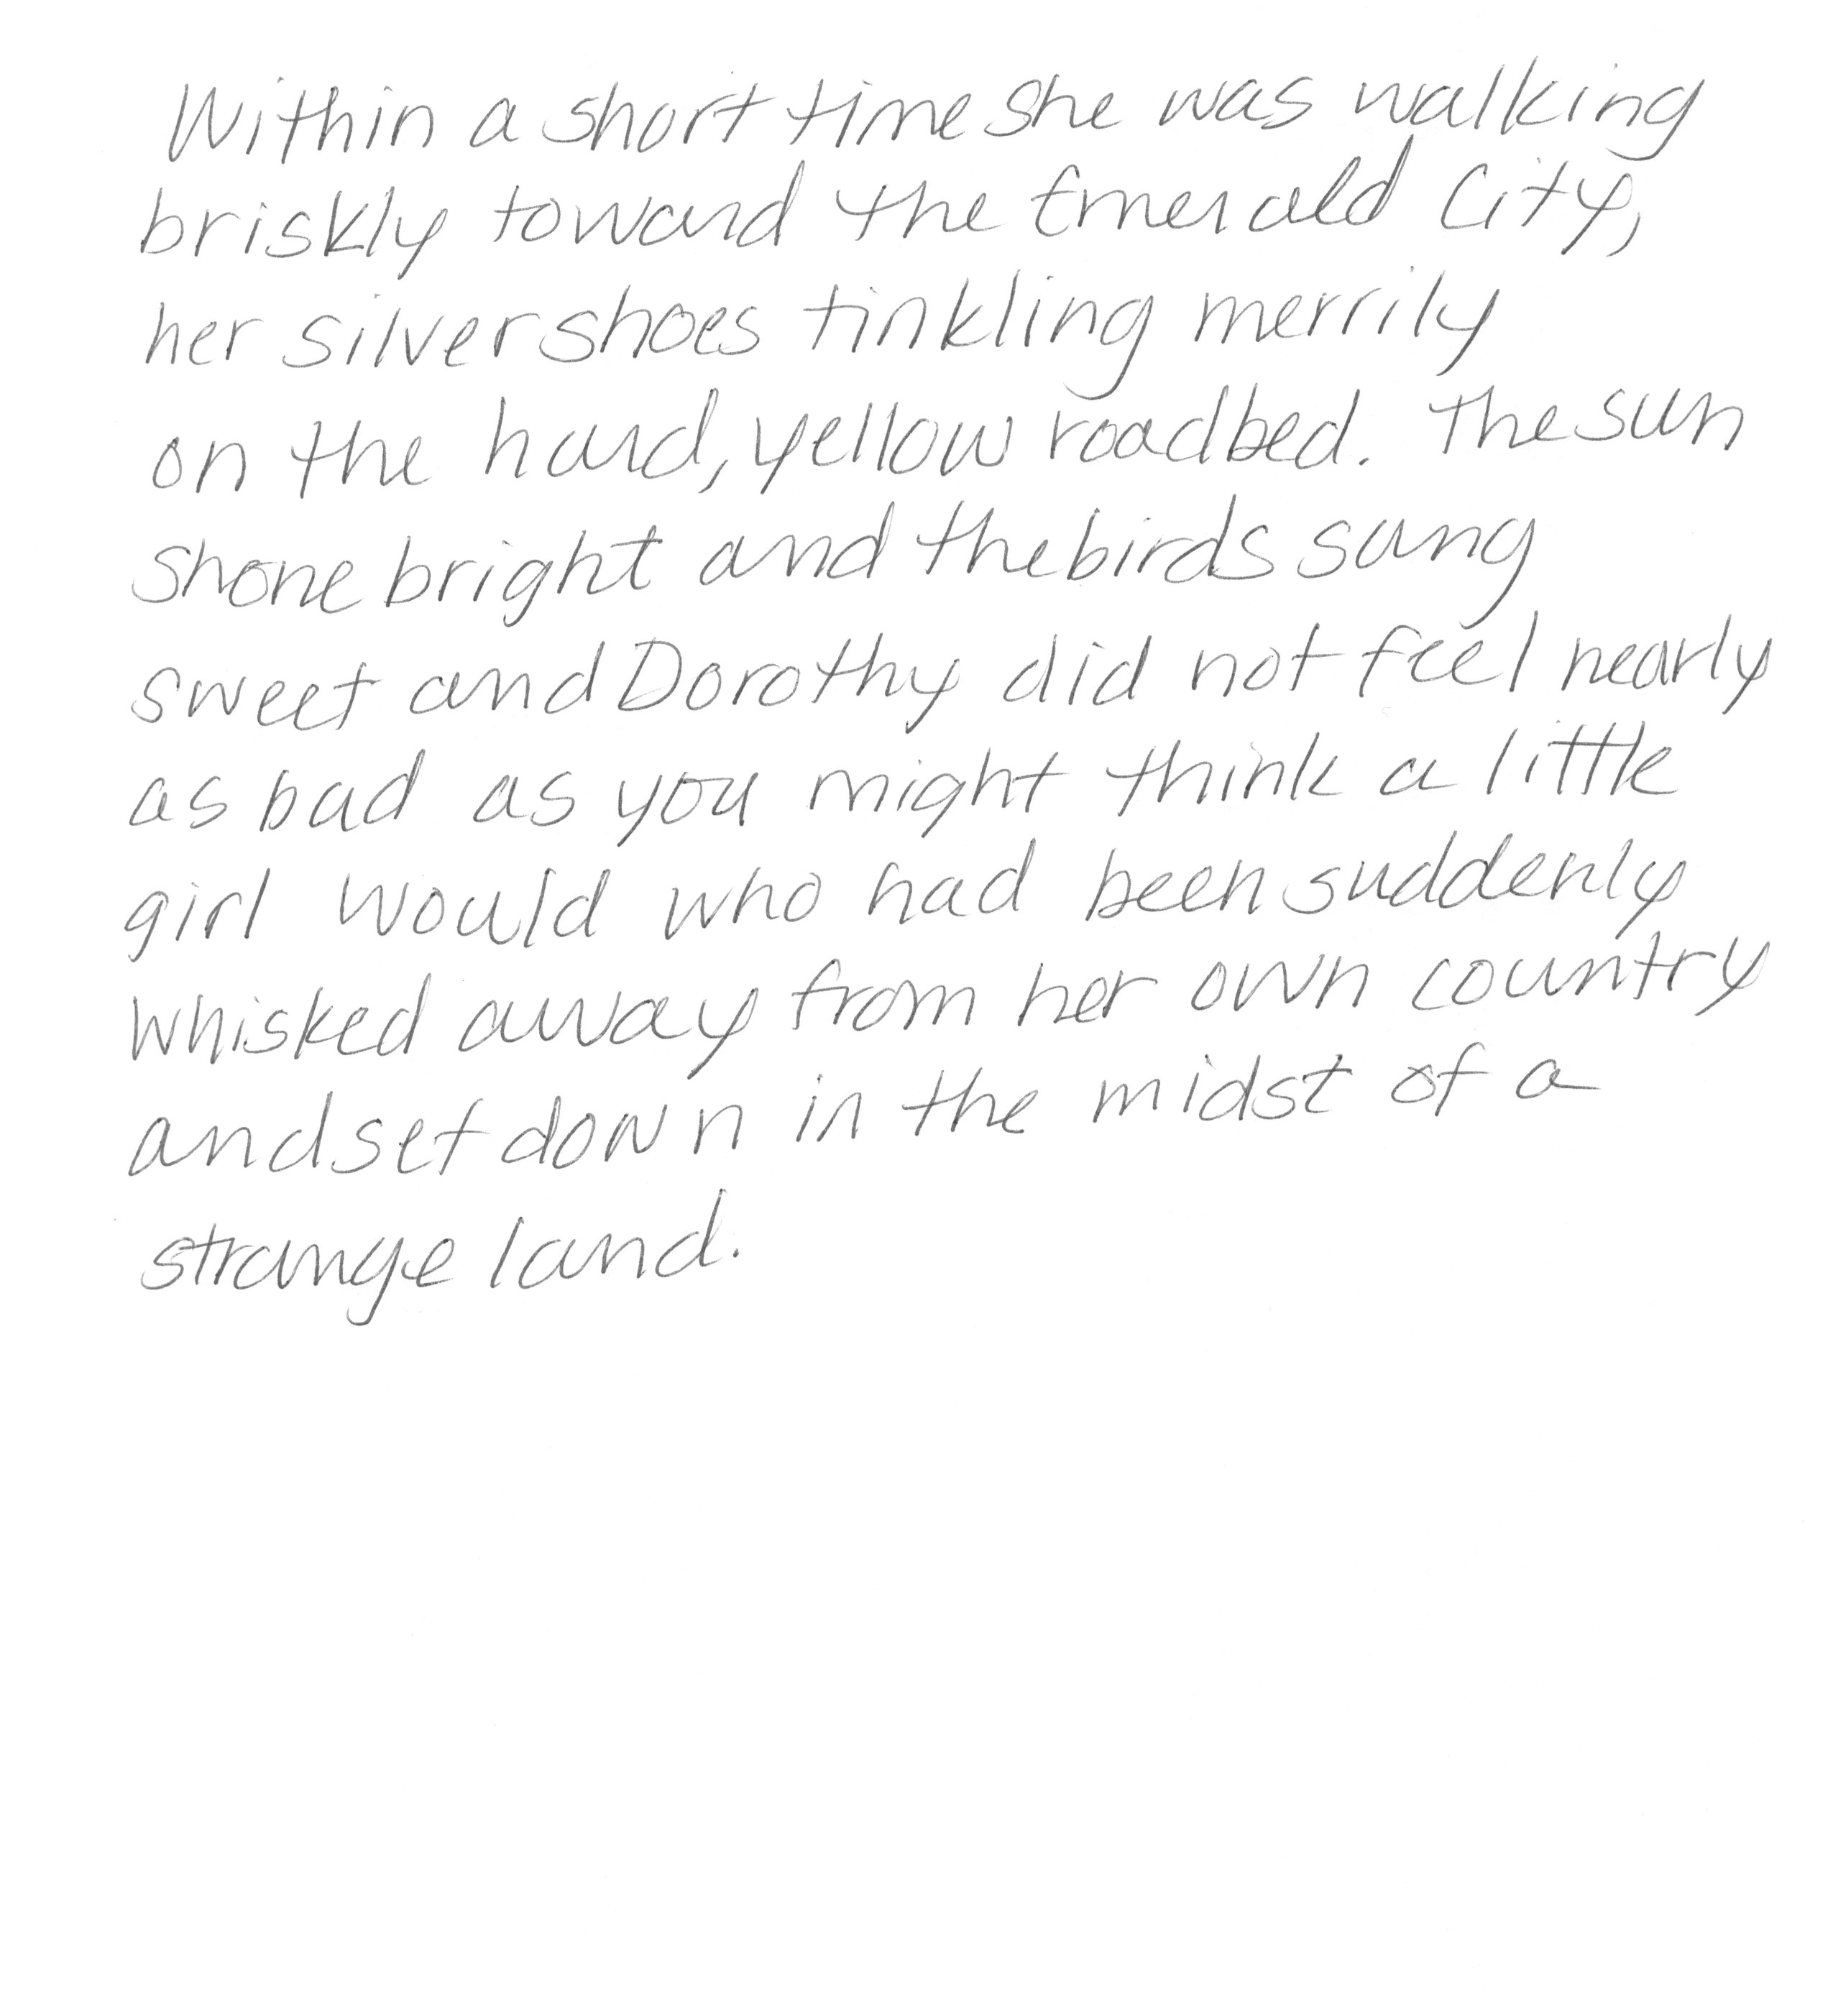 Within a short time she was walking
briskly toward the Emerald City,
her silver shoes tinkling merrily
on the hard, yellow roadbed. The sun
shone bright and the birds sang
sweet and Dorothy did not feel nearly
as bad as you might think a little
girl would who had been suddenly
whisked away from her own country
and set down in the midst of a
strange land.